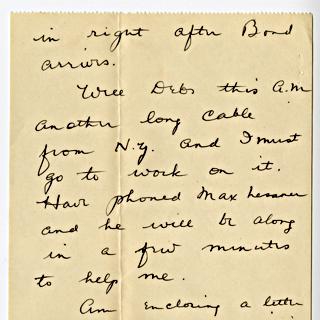 in right after Bond
arrivs.
Well Debs this A.M
another long cable
from N.Y. and I must
go to work on it.
Have phoned Max Lessner
and he will be along
in a few minutes
to help me.
Am enclosing a letter